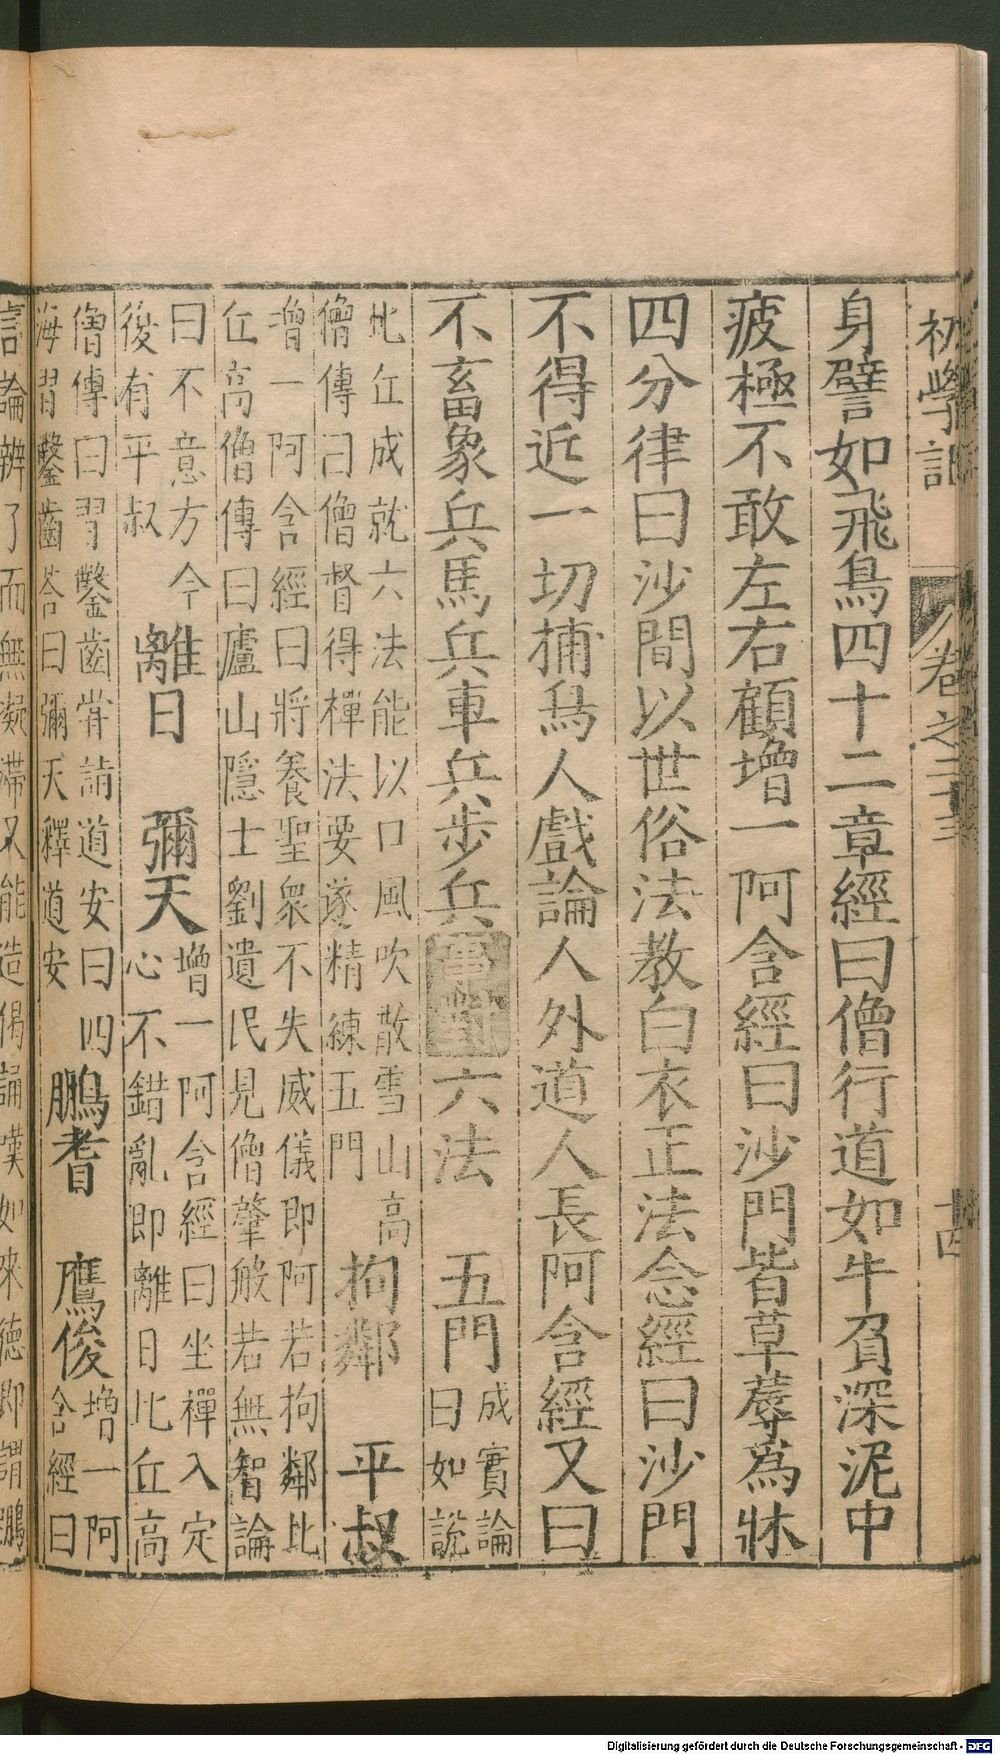 初學記 卷之二十三 十四
身譬如飛鳥四十二章經曰僧行道如牛負深泥中
疲極不敢左右顧增一阿含經曰沙門皆草蓐為牀
四分律曰沙間以世俗法教白衣正法念經曰沙門
不得近一切捕鳥人戲論人外道人長阿含經又曰
不畜象兵馬兵車兵步兵事對六法 五門成實論
曰如說
比丘成就六法能以口風吹散雪山高
僧傳曰僧督得禪法要遂精練五門
拘鄰 平叔
增一阿含經曰將養聖衆不失威儀即阿若拘鄰比
丘高僧傳曰廬山隱士劉遺民見僧肇般若無智論
曰不意方今
後有平叔
離日 彌天
增一阿含經曰坐禪入定
心不錯亂即離日比丘高
僧傳曰習鑿齒嘗請道安曰四
海習鑿齒答曰彌天釋道安
鵬耆 鷹俊
增一阿
含經曰
言論辨了而無凝滯又能造偈誦嘆如來德即謂鵬
Digitalisierung gefördert durch die Deutsche Forschungsgemeinschaft - DFG